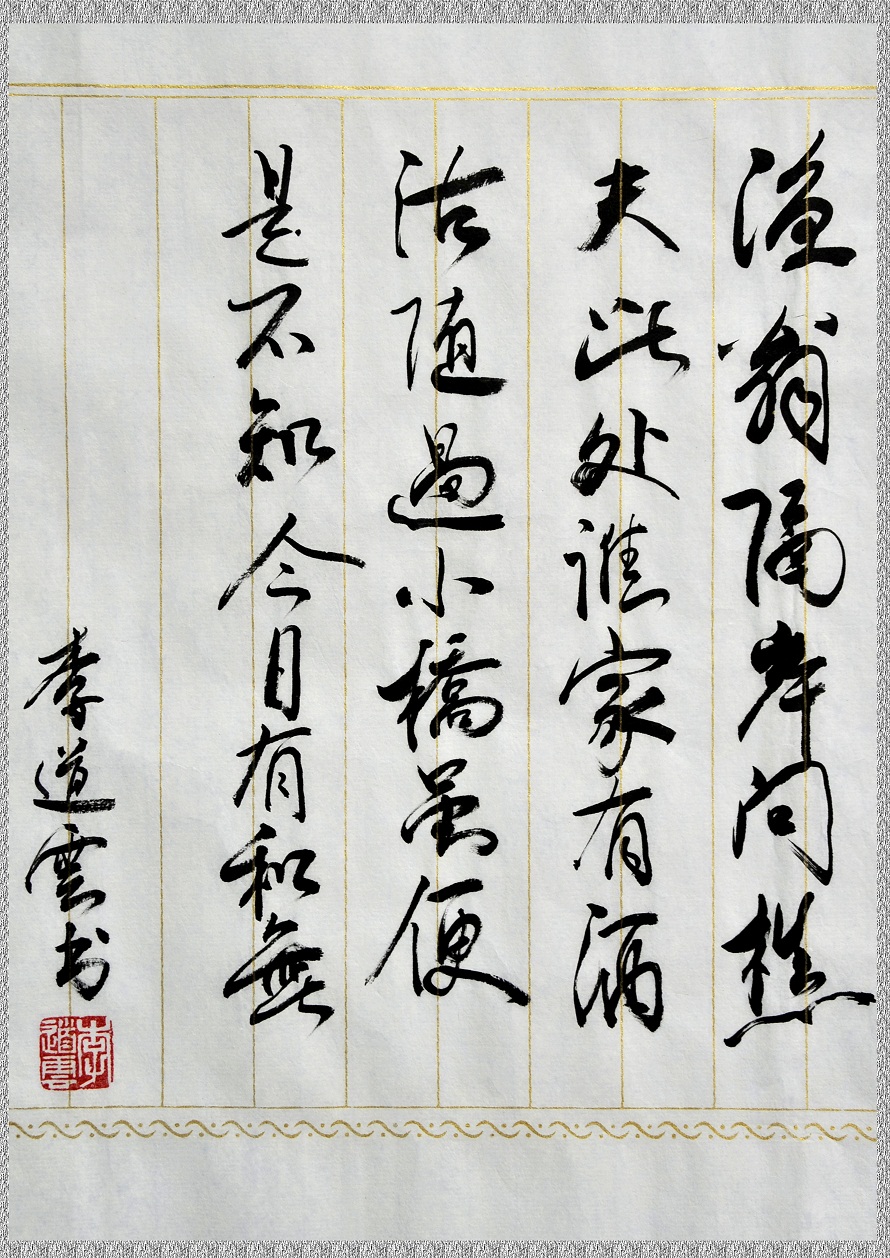 渔翁隔岸问樵
夫此处谁家有酒
沽随過小橋虽便
是不知今日有和無
李道雲书
李道雲